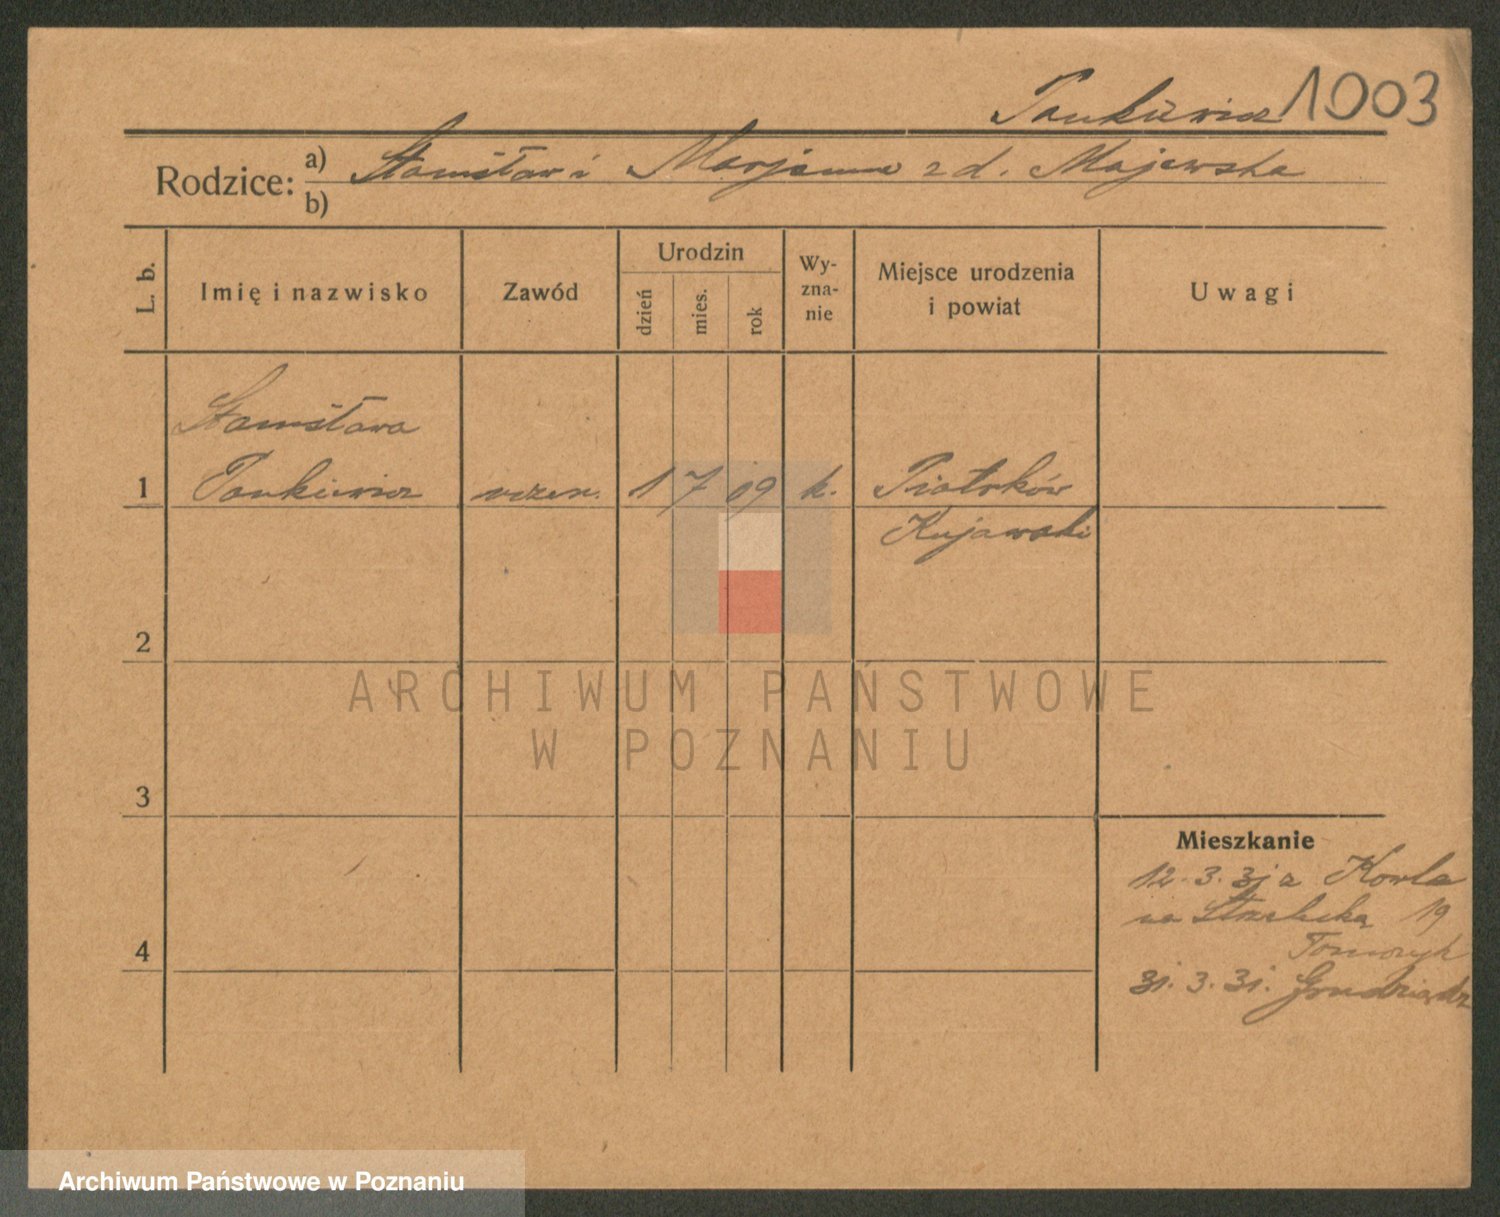 Pankiewicz 1003
Rodzice: a) Stanisław i Marjanna z d. Majewska
b)
L. b.
Imię i nazwisko
Zawód
Urodzin
dzień
mies.
rok
Wy-
zna-
nie
Miejsce urodzenia
i powiat
Uwagi
Stanisława
1 Pankiewicz uczen. 1 7 09 k. Piotrków
Kujawski
2
3
4
Mieszkanie
12.3.31 z Kowla
na Strzelecką 19
31.3.31. Grudziądz
ARCHIWUM PAŃSTWOWE
W POZNANIU
Archiwum Państwowe w Poznaniu